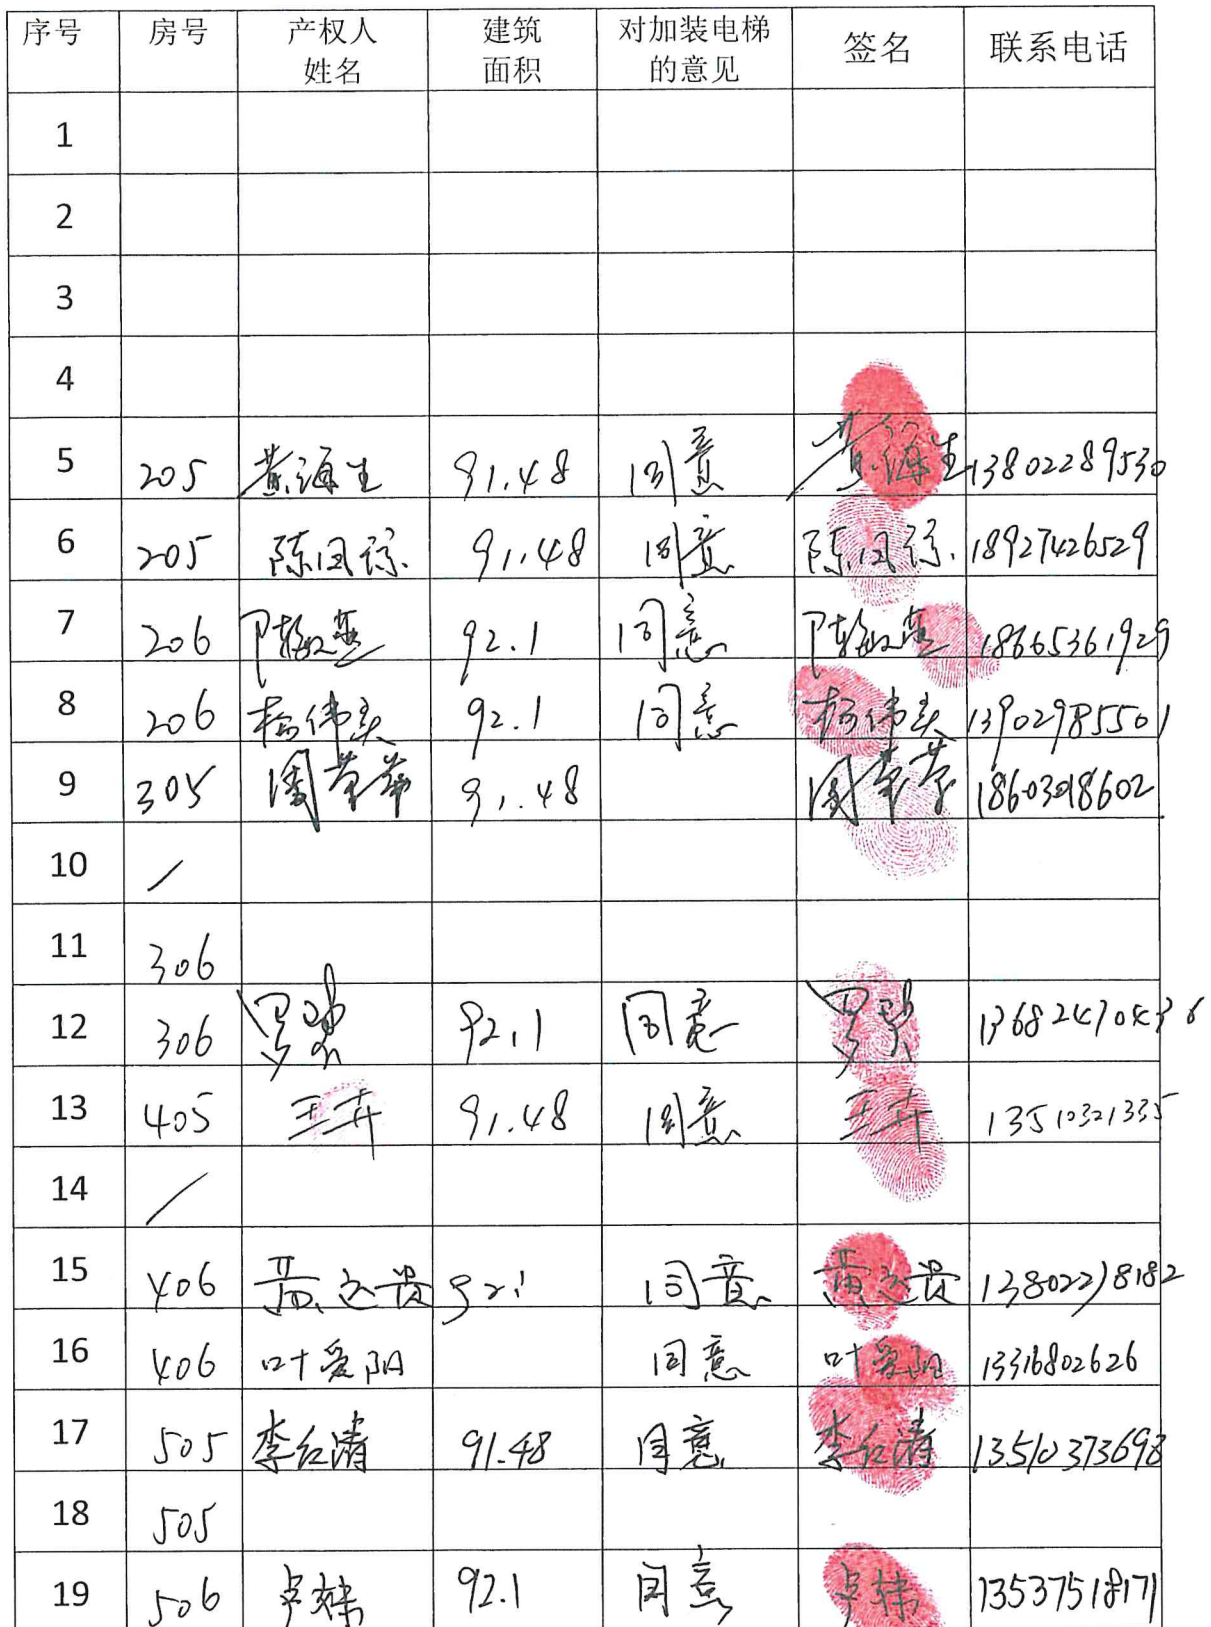 序号 房号 产权人姓名 建筑面积 对加装电梯的意见 签名 联系电话
1
2
3
4
5 205 黄海生 91.48 同意 黄海生 13802289530
6 205 陈凤琼 91.48 同意 陈凤琼 18927426529
7 206 92.1 同意 18665361929
8 206 92.1 同意 13902985501
9 305 91.48 18603018602
10 /
11 306
12 306 92.1 同意
13 405 王卉 91.48 同意 王卉 13510321335
14 /
15 406 黄远贵 92.1 同意 黄远贵 13802298182
16 406 叶爱阳 同意 叶爱阳 13316802626
17 505 李红清 91.48 同意 李红清 13510373698
18 505
19 506 卢栋 92.1 同意 卢栋 13537518171